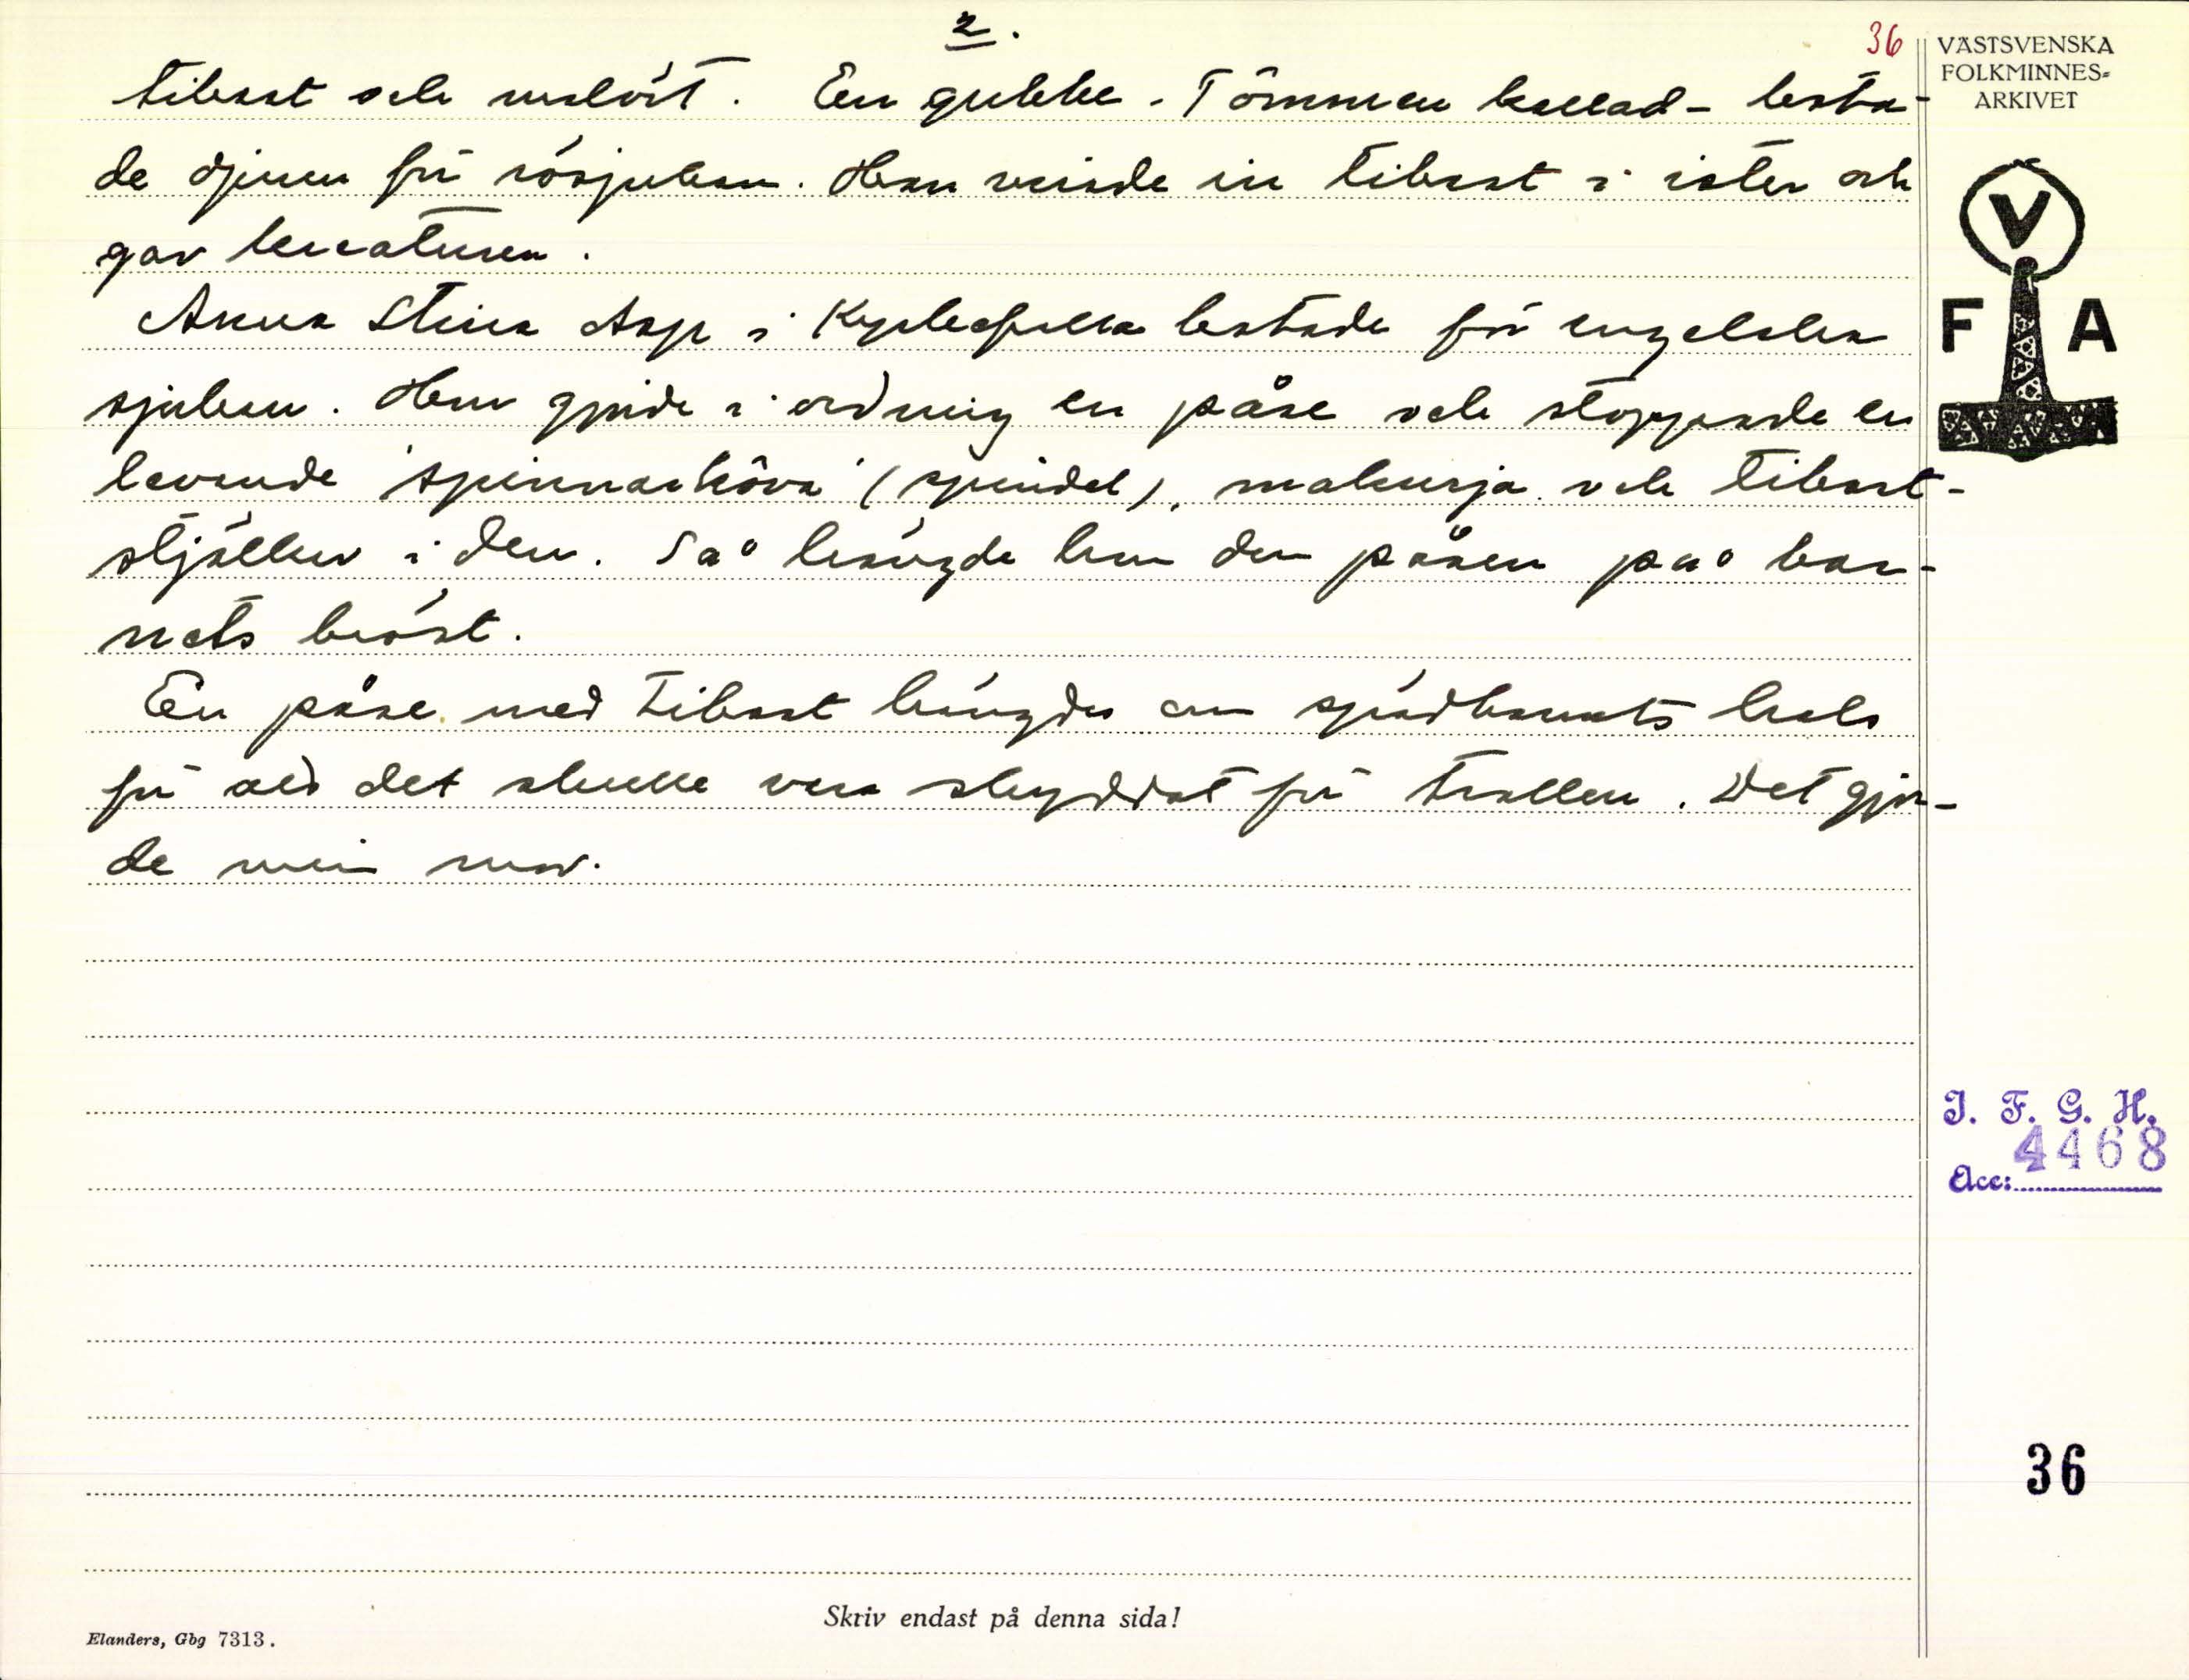 2.
36
tibast och valört. En gubbe - Tömmen kallad - bota-
de djuren för rösjukan. Han vände in tibast i ister och
gav kreaturen.
Anna Stina Asp i botade för engelska
sjukan. Hon gjorde i ordning en påse och stoppade en
levande spinnarhöva (spindel), makurja och tibast-
stjälkar i den. Så hängde hon den påsen på bar-
nets bröst.
En påse med tibast hängdes om spädbarnets hals
för att det skulle vara skyddat för trollen. Det gjor-
de min mor.
VÄSTSVENSKA
FOLKMINNES-
ARKIVET
V
F A
I. F. G. H.
4468
Acc:
36
Skriv endast på denna sida!
Elanders, Gbg 7313.